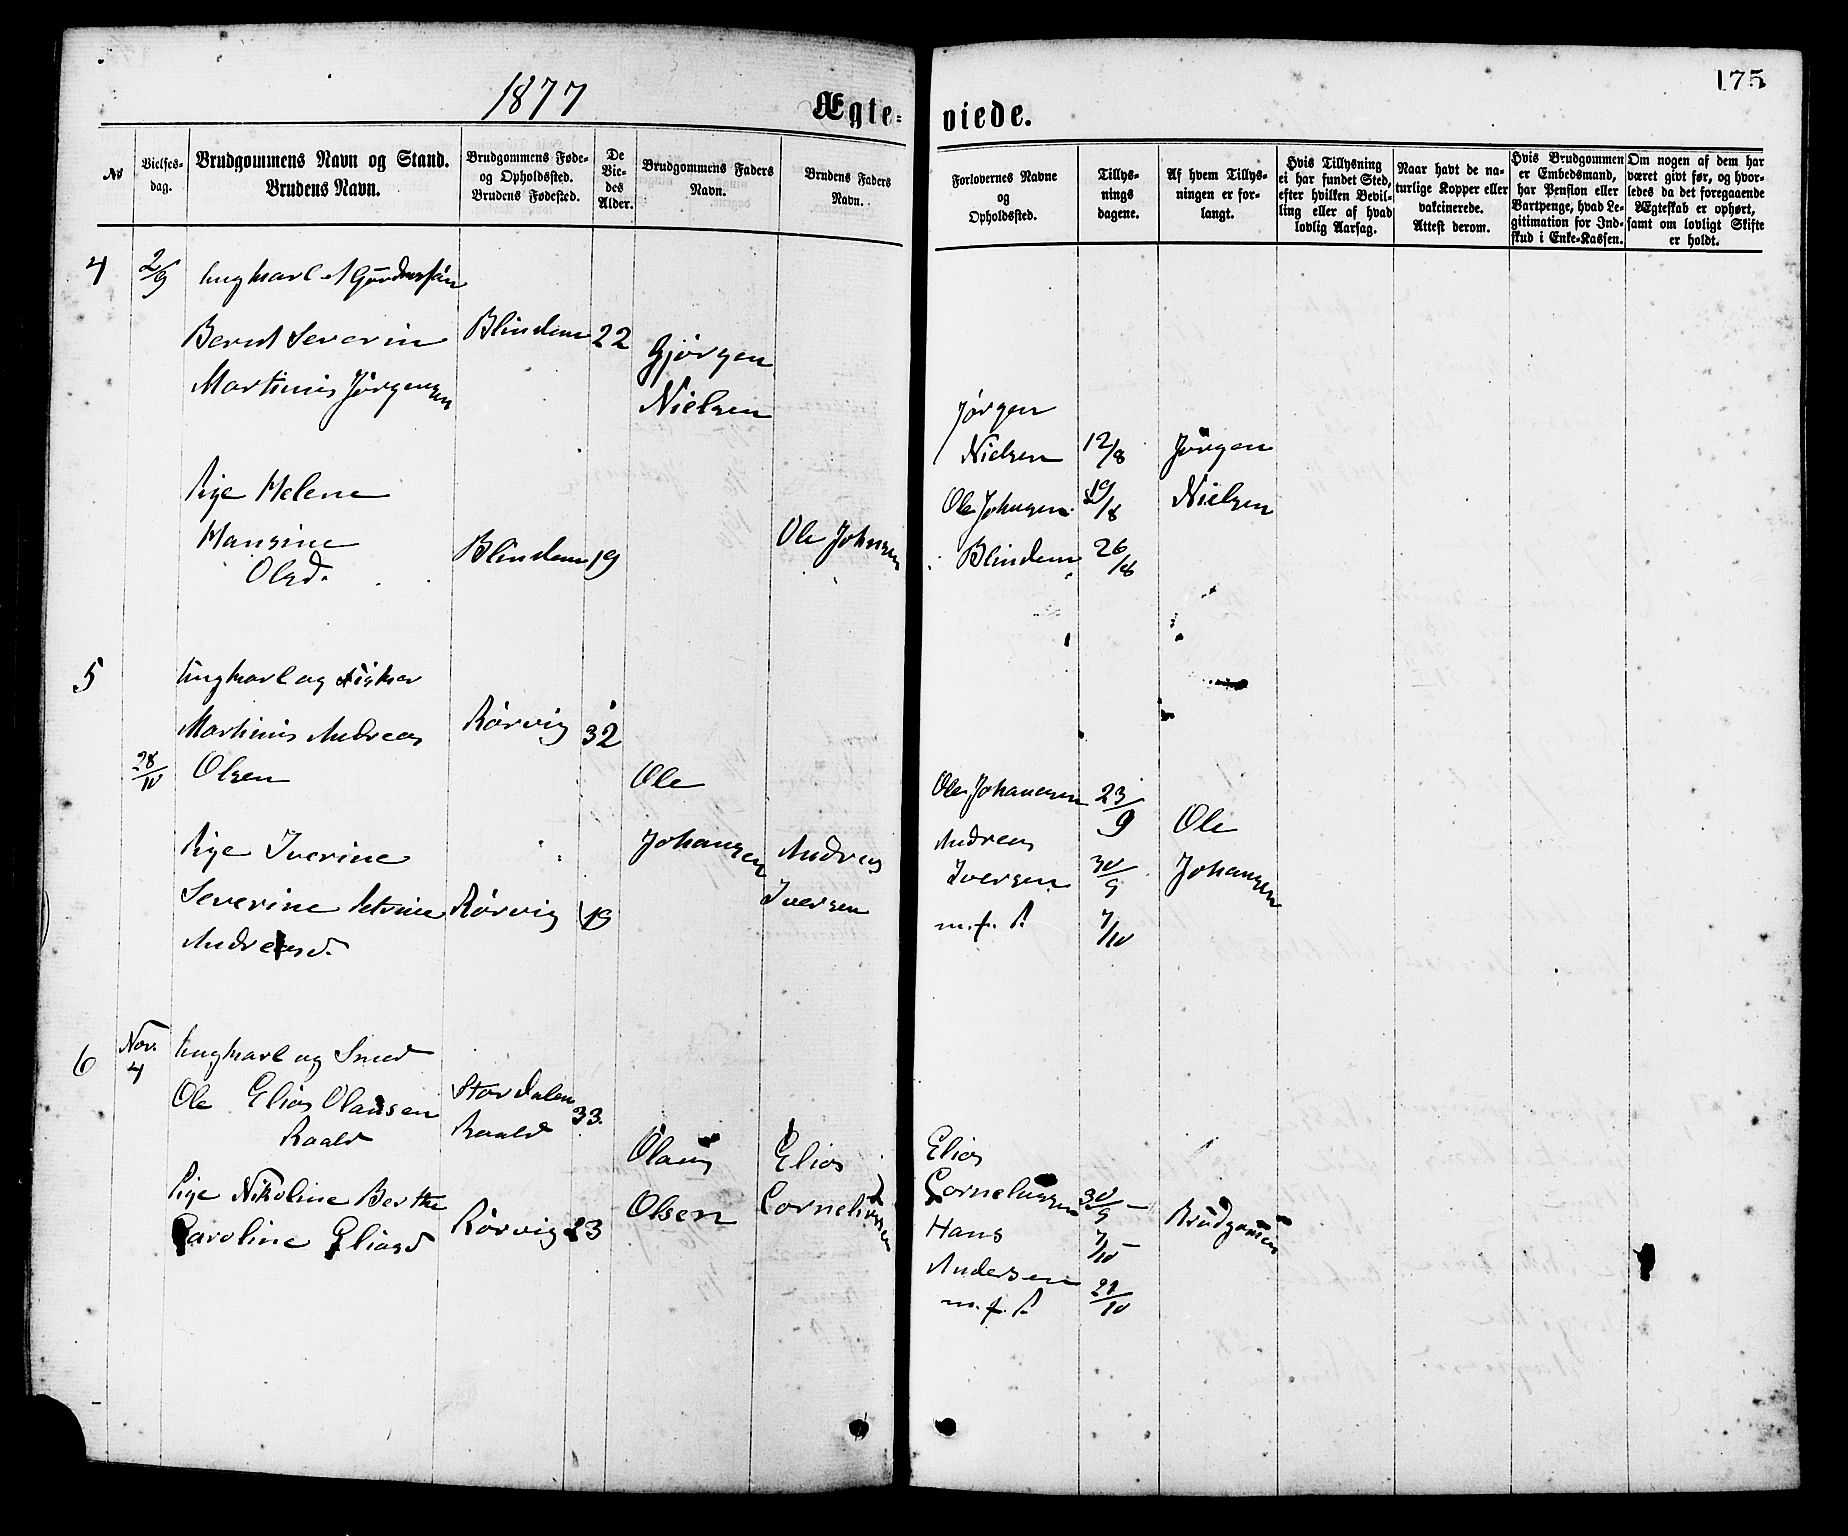 1877
Ægte=
viede.
175
No
Vielses-
dag.
Brudgommens Navn og Stand.
Brudens Navn.
Brudgommens Føde-
og Opholdssted.
Brudens Fødested.
De
Vie-
des
Alder.
Brudgommens Faders
Navn.
Brudens Faders
Navn.
Forlovernes Navne
og
Opholdssted.
Tillys-
nings
dagene.
Af hvem Tillys-
ningen er for-
langt.
Hvis Tillysning
ei har fundet Sted,
efter hvilken Bevil-
ling eller af hvad
lovlig Aarsag.
Naar havt de na-
turlige Kopper eller
vakcinerede.
Attest derom.
Hvis Brudgommen
er Embedsmand,
har Pension eller
Vartpenge, hvad Le-
gitimation for Ind-
skud i Enke-Kassen.
Om nogen af dem har
været givt før, og hvor-
ledes da det foregaaende
Ægteskab er ophørt,
samt om lovligt Skifte
er holdt.
4
2/9
Ungkarl
Bernt Severin
Martinus Jørgensen
Blindem
22
Gjørgen
Nielsen
Pige Helene
Hansine
Olsd.
Blindem
19
Ole Johnsen
Jørgen
Nielsen
Ole Johnsen
Blindem
12/8
19/8
26/8
Jørgen
Nielsen
5
28/10
Ungkarl og Fisker
Martinus Andreas
Olsen
Rørvig
32
Ole
Johansen
Pige Iverine
Severine Petrine
Andreasd.
Rørvig
19
Andreas
Iversen
Ole Johansen
Andreas
Iversen
m. f. P.
23/9
30/9
7/10
Ole
Johansen
6
Nov.
4
Ungkarl og Smed
Ole Elias Olausen
Raald
Stordalen
Raald
33.
Olaus
Olsen
Pige Nikoline Berthe
Caroline Eliasd
Rørvig
23
Elias
Corneliussen
Elias
Corneliussen
Hans
Andersen
m. f. P.
30/9
7/10
21/10
Brudgommen